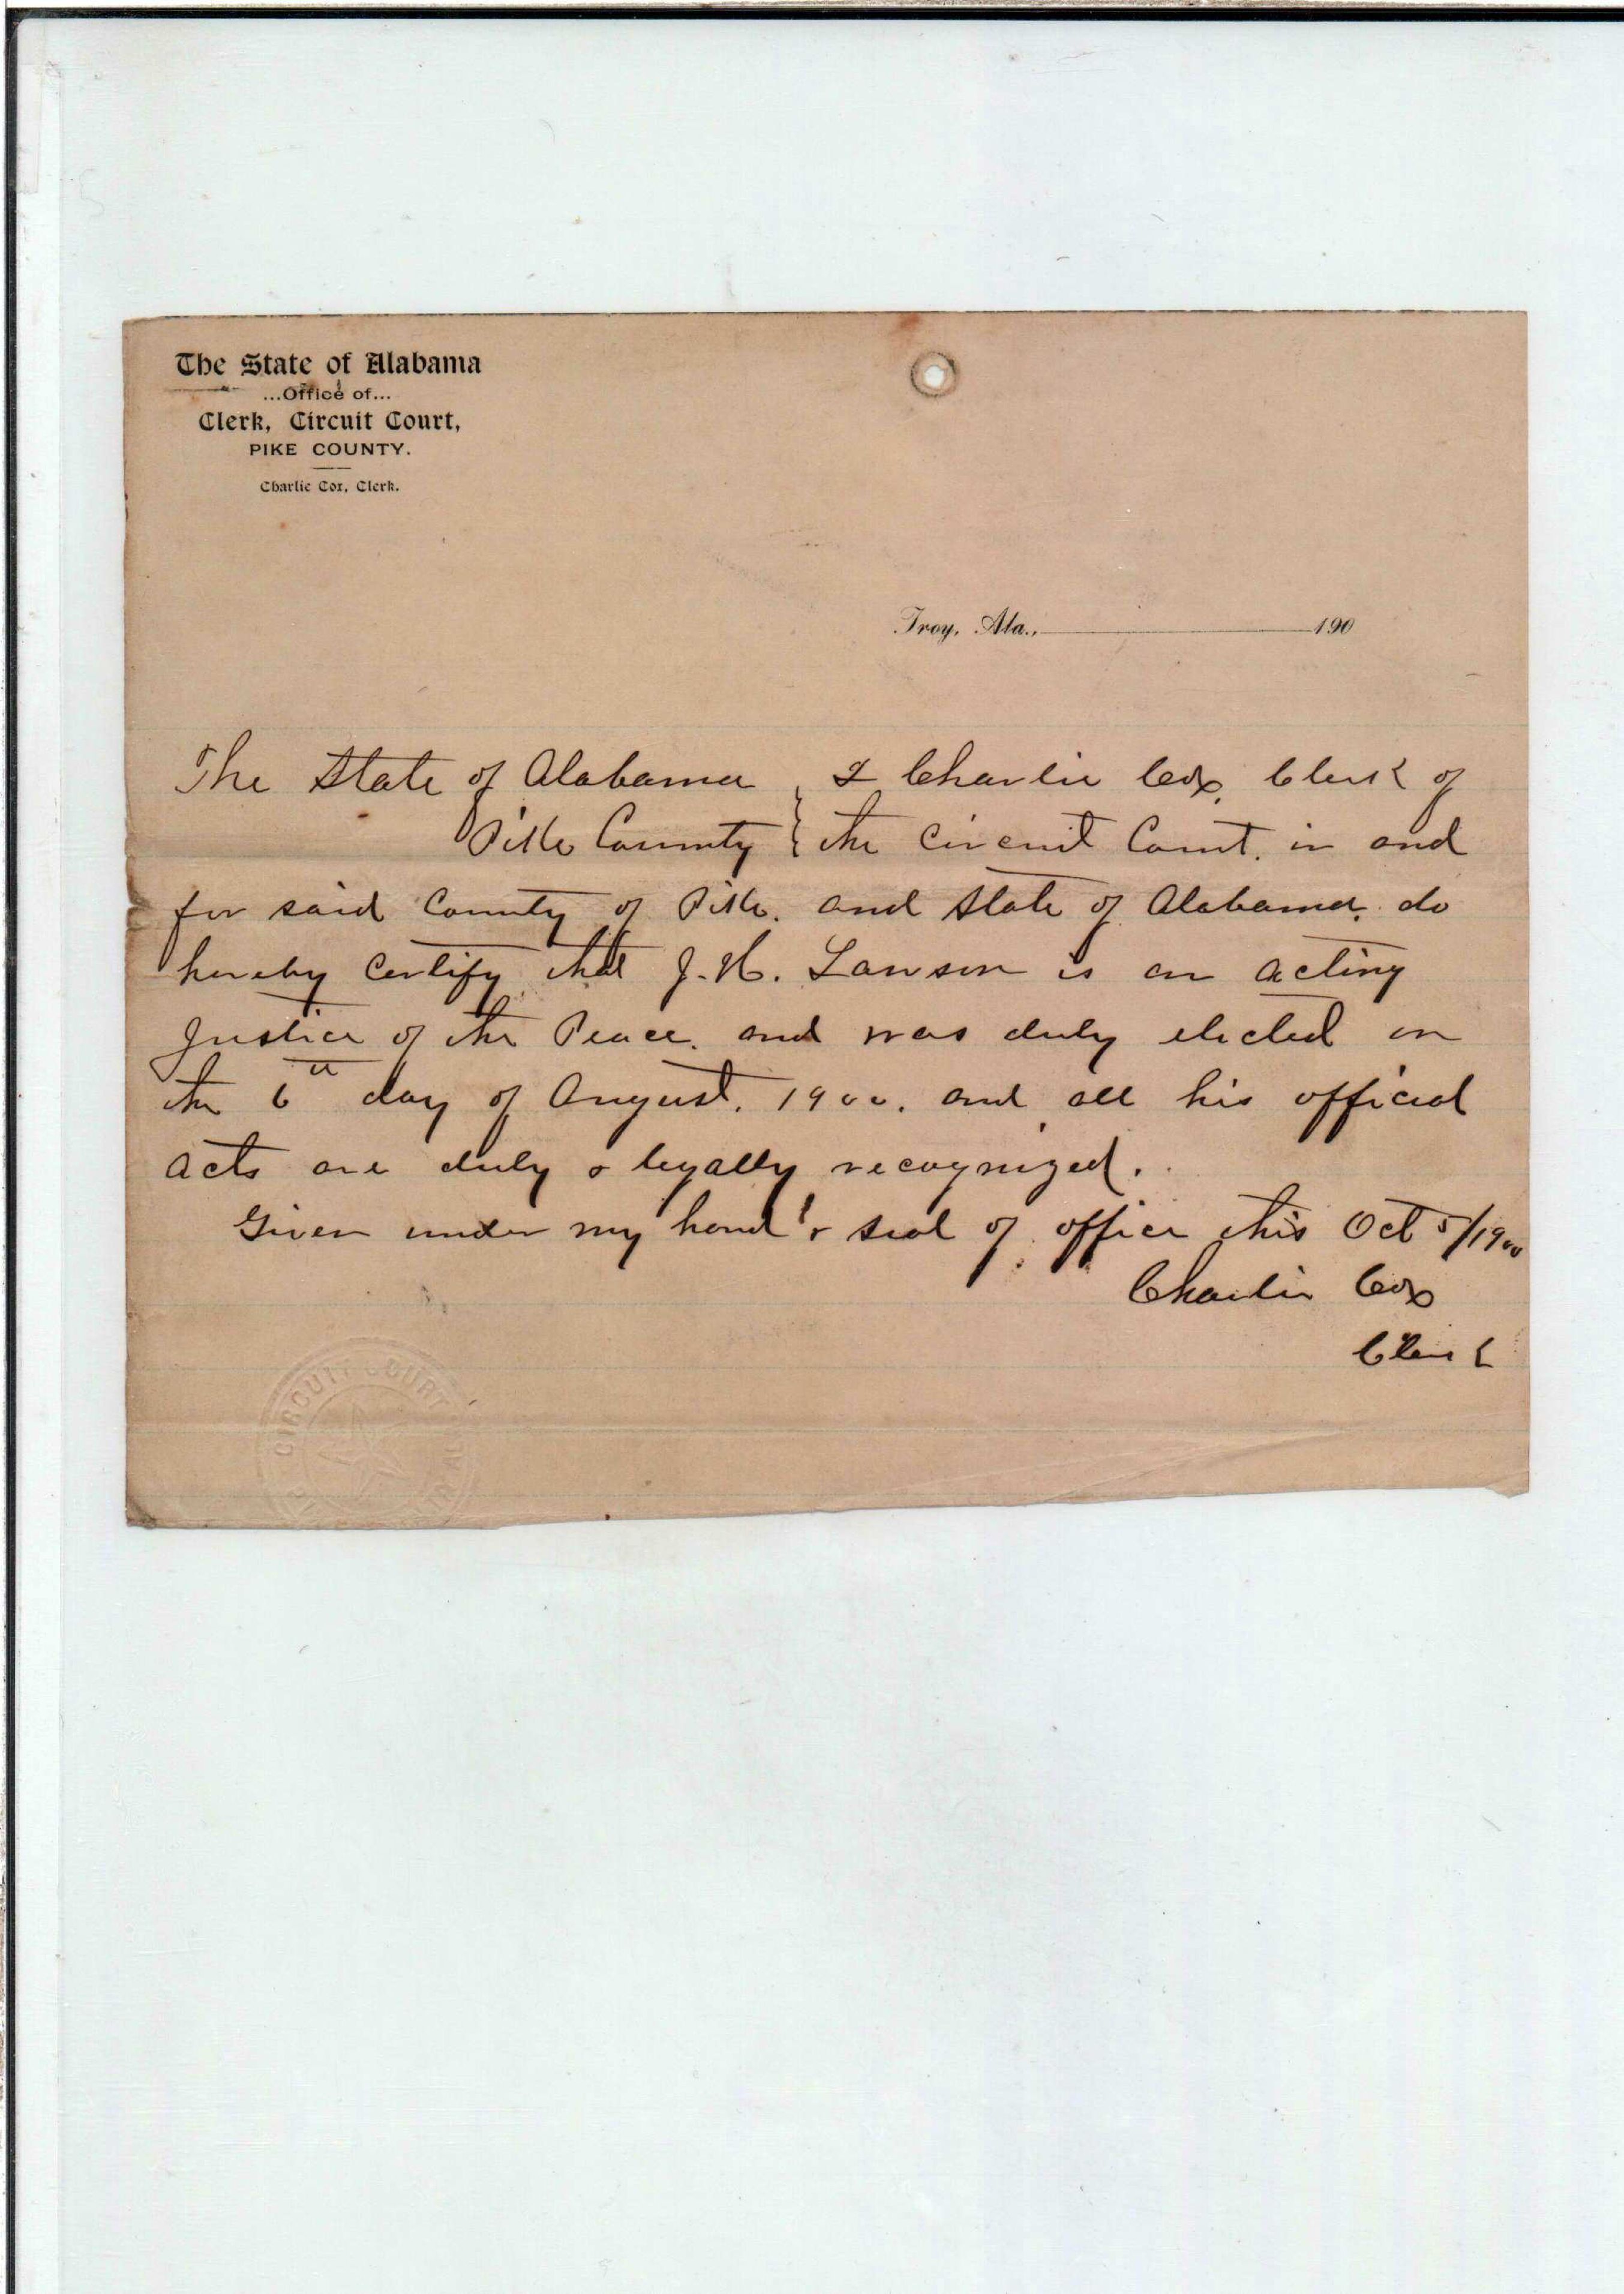 The State of Alabama
...Office of...
Clerk, Circuit Court,
PIKE COUNTY.
Charlie Cox, Clerk.
Troy, Ala., 190
The State of Alabama } I Charlie Cox, Clerk of
Pike County } the Circuit Court. in and
for said County of Pike. and State of Alabama. do
hereby Certify that J. H. Lawson is an acting
Justice of the Peace. and was duly elected on
the 6th day of August. 1900. and all his official
acts are duly & legally recognized.
Given under my hand & seal of office this Oct 5/1900
Charlie Cox
Clerk
CIRCUIT COURT